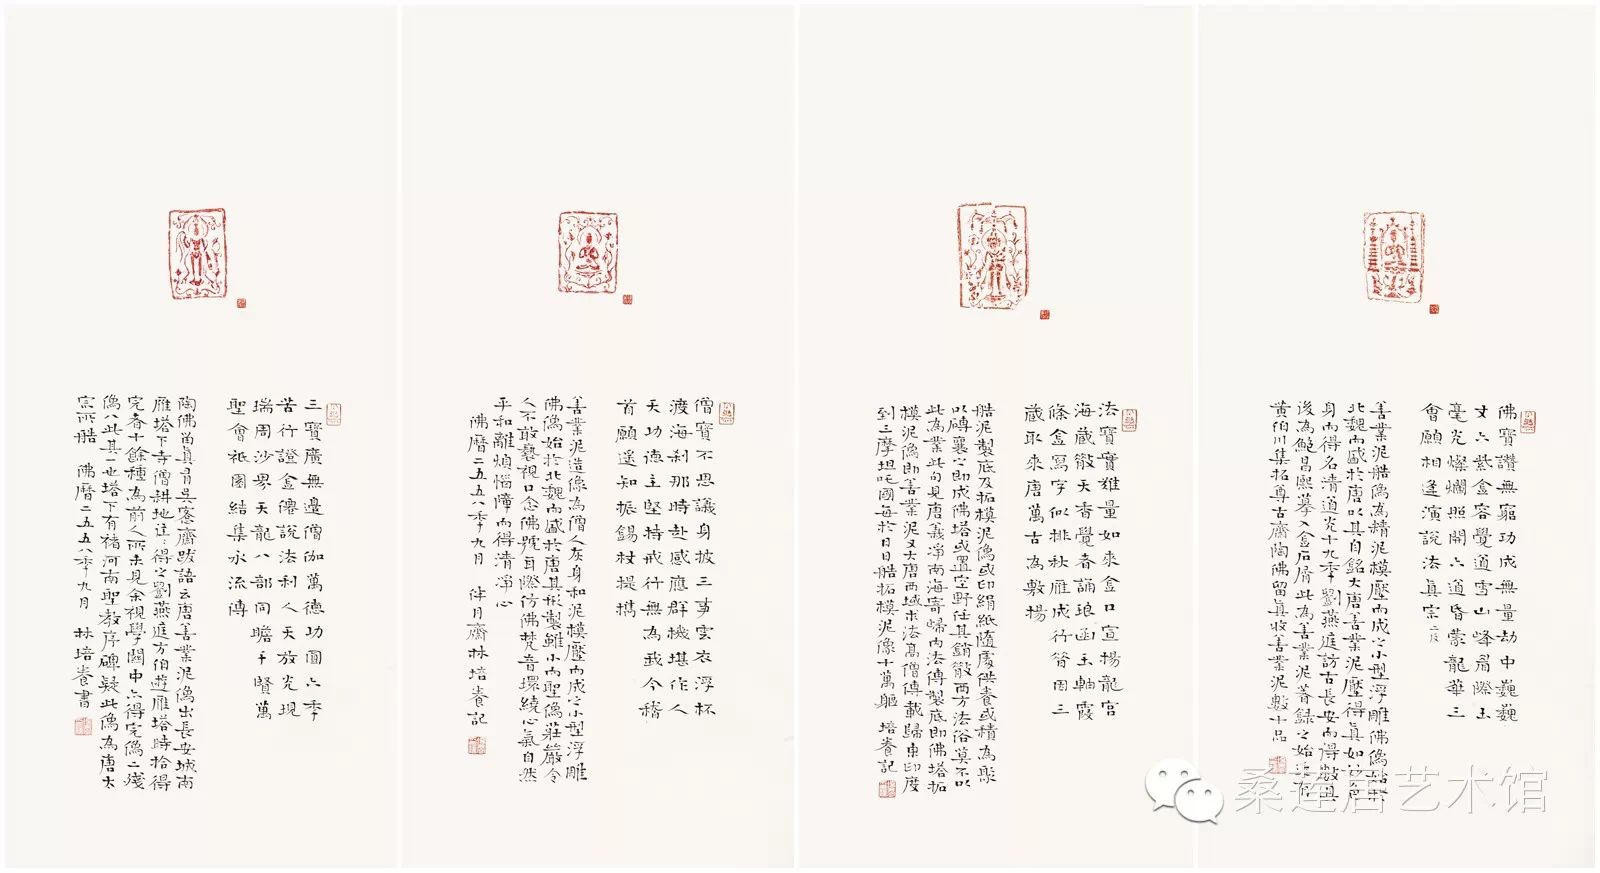 佛寶讚無窮功成無量劫中巍巍
丈六紫金容覺道雪山峰眉際玉
毫光燦爛照開六道昏蒙龍華三
會願相逢演說法真宗
善業泥艁像為精泥模壓而成之小型浮雕佛像始於
北魏而盛於唐以其自銘大唐善業泥壓得真如妙色
身而得名清道光十九季劉燕庭訪古長安而得數
後為鮑昌熙摹入金石屑此為善業泥著錄之始
黃伯川集拓尊古齋陶佛留真收善業泥數十品
法寶實難量如來金口宣揚龍宮
海藏散天香覺者誦琅函玉軸霞
條金寫字似排秋雁成行昔因三
藏取來唐萬古為敷揚
艁泥製底及拓模泥像或印絹紙隨處供養或積為聚
以磚裹之即成佛塔或置空野任其銷散西方法俗莫不以
此為業此句見唐義淨南海寄歸內法傳製底即佛塔拓
模泥像即善業泥又大唐西域求法高僧傳載歸東印度
到三摩呾吒國每於日日艁拓模泥像十萬軀 培養記
僧寶不思議身披三事雲衣浮杯
渡海剎那時赴感應群機堪作人
天功德主堅持戒行無為我今稽
首願遙知振錫杖提攜
善業泥造像為僧人灰身和泥模壓而成之小型浮雕
佛像始於北魏而盛於唐其形製雖小而聖像莊嚴令
人不敢褻視口念佛號耳際仿佛梵音環繞心氣自然
平和離煩惱障而得清凈心
佛曆二五五八季九月 伴月齋林培養記
三寶廣無邊僧伽萬德功圓六季
苦行證金僊說法利人天放光現
瑞周沙界天龍八部同瞻千賢萬
聖會祇園結集永流傳
陶佛留真有吳愙齋跋語云唐善業泥像出長安城南
雁塔下寺僧耕地往往得之劉燕庭方伯遊雁塔時拾得
完者十餘種為前人所未見余視學關中亦得完像二殘
像八此其一也塔下有褚河南聖教序碑疑此像為唐太
宗所艁 佛曆二五五八季九月 林培養書
桑莲居艺术馆